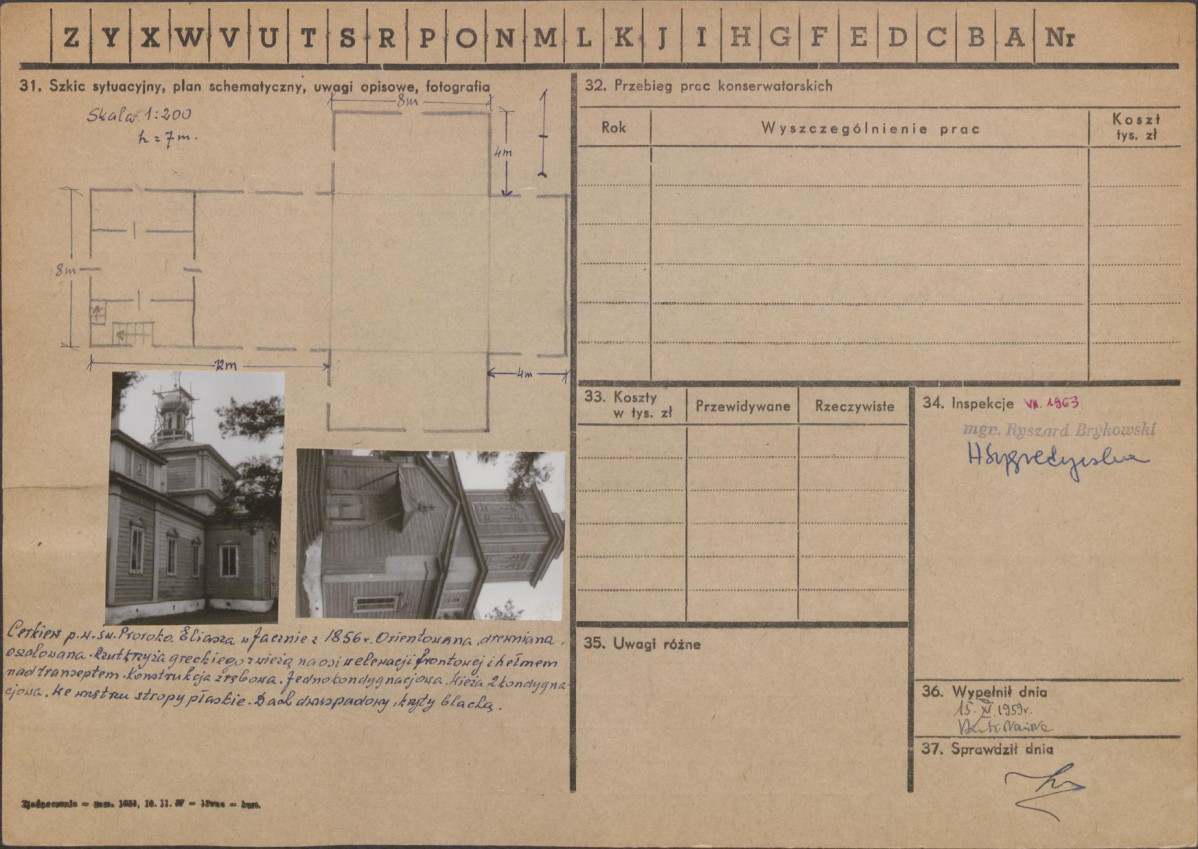 Z Y X W V U T S R P O N M L K J I H G F E D C B A Nr
31. Szkic sytuacyjny, plan schematyczny, uwagi opisowe, fotografia
Skala 1:200
h = 7 m.
8m
4m
8m
12m
4m
Cerkiew p.w. św. Proroka Eliasza w Jacznie z 1856 r. Orientowana, drewniana,
oszalowana. Rzut krzyża greckiego z wieżą na osi w elewacji frontowej i hełmem
nad transeptem. Konstrukcja zrębowa. Jednokondygnacjowa. Wieża 2 kondygna-
cjowa. We wnętrzu stropy płaskie. Dach dwuspadowy, kryty blachą.
32. Przebieg prac konserwatorskich
Rok
Wyszczególnienie prac
Koszt
tys. zł
33. Koszty
w tys. zł
Przewidywane
Rzeczywiste
34. Inspekcje VII. 1963
mgr. Ryszard Brykowski
35. Uwagi różne
36. Wypełnił dnia
15. XI 1959r.
37. Sprawdził dnia